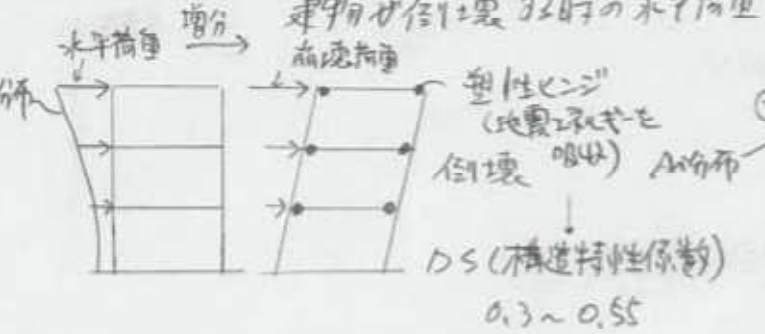 建物が倒壊する時の水平荷重
増分
水平荷重
崩壊荷重
分布
塑性ヒンジ
(地震エネルギーを
吸収)
倒壊
Ai分布
DS(構造特性係数)
0.3~0.55